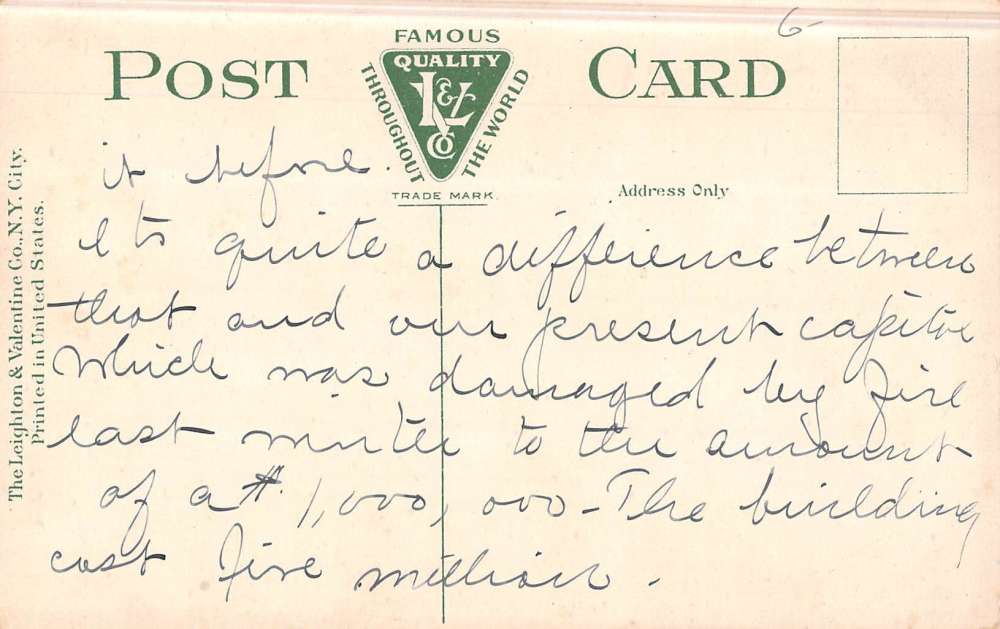 6-
POST CARD
FAMOUS
QUALITY
L & V
CO
THROUGHOUT THE WORLD
TRADE MARK.
Address Only
The Leighton & Valentine Co., N.Y. City.
Printed in United States.
it before.
Its quite a difference between
that and our present capitol
which was damaged by fire
last winter to the amount
of a $ 1,000,000 - The building
cost five million.